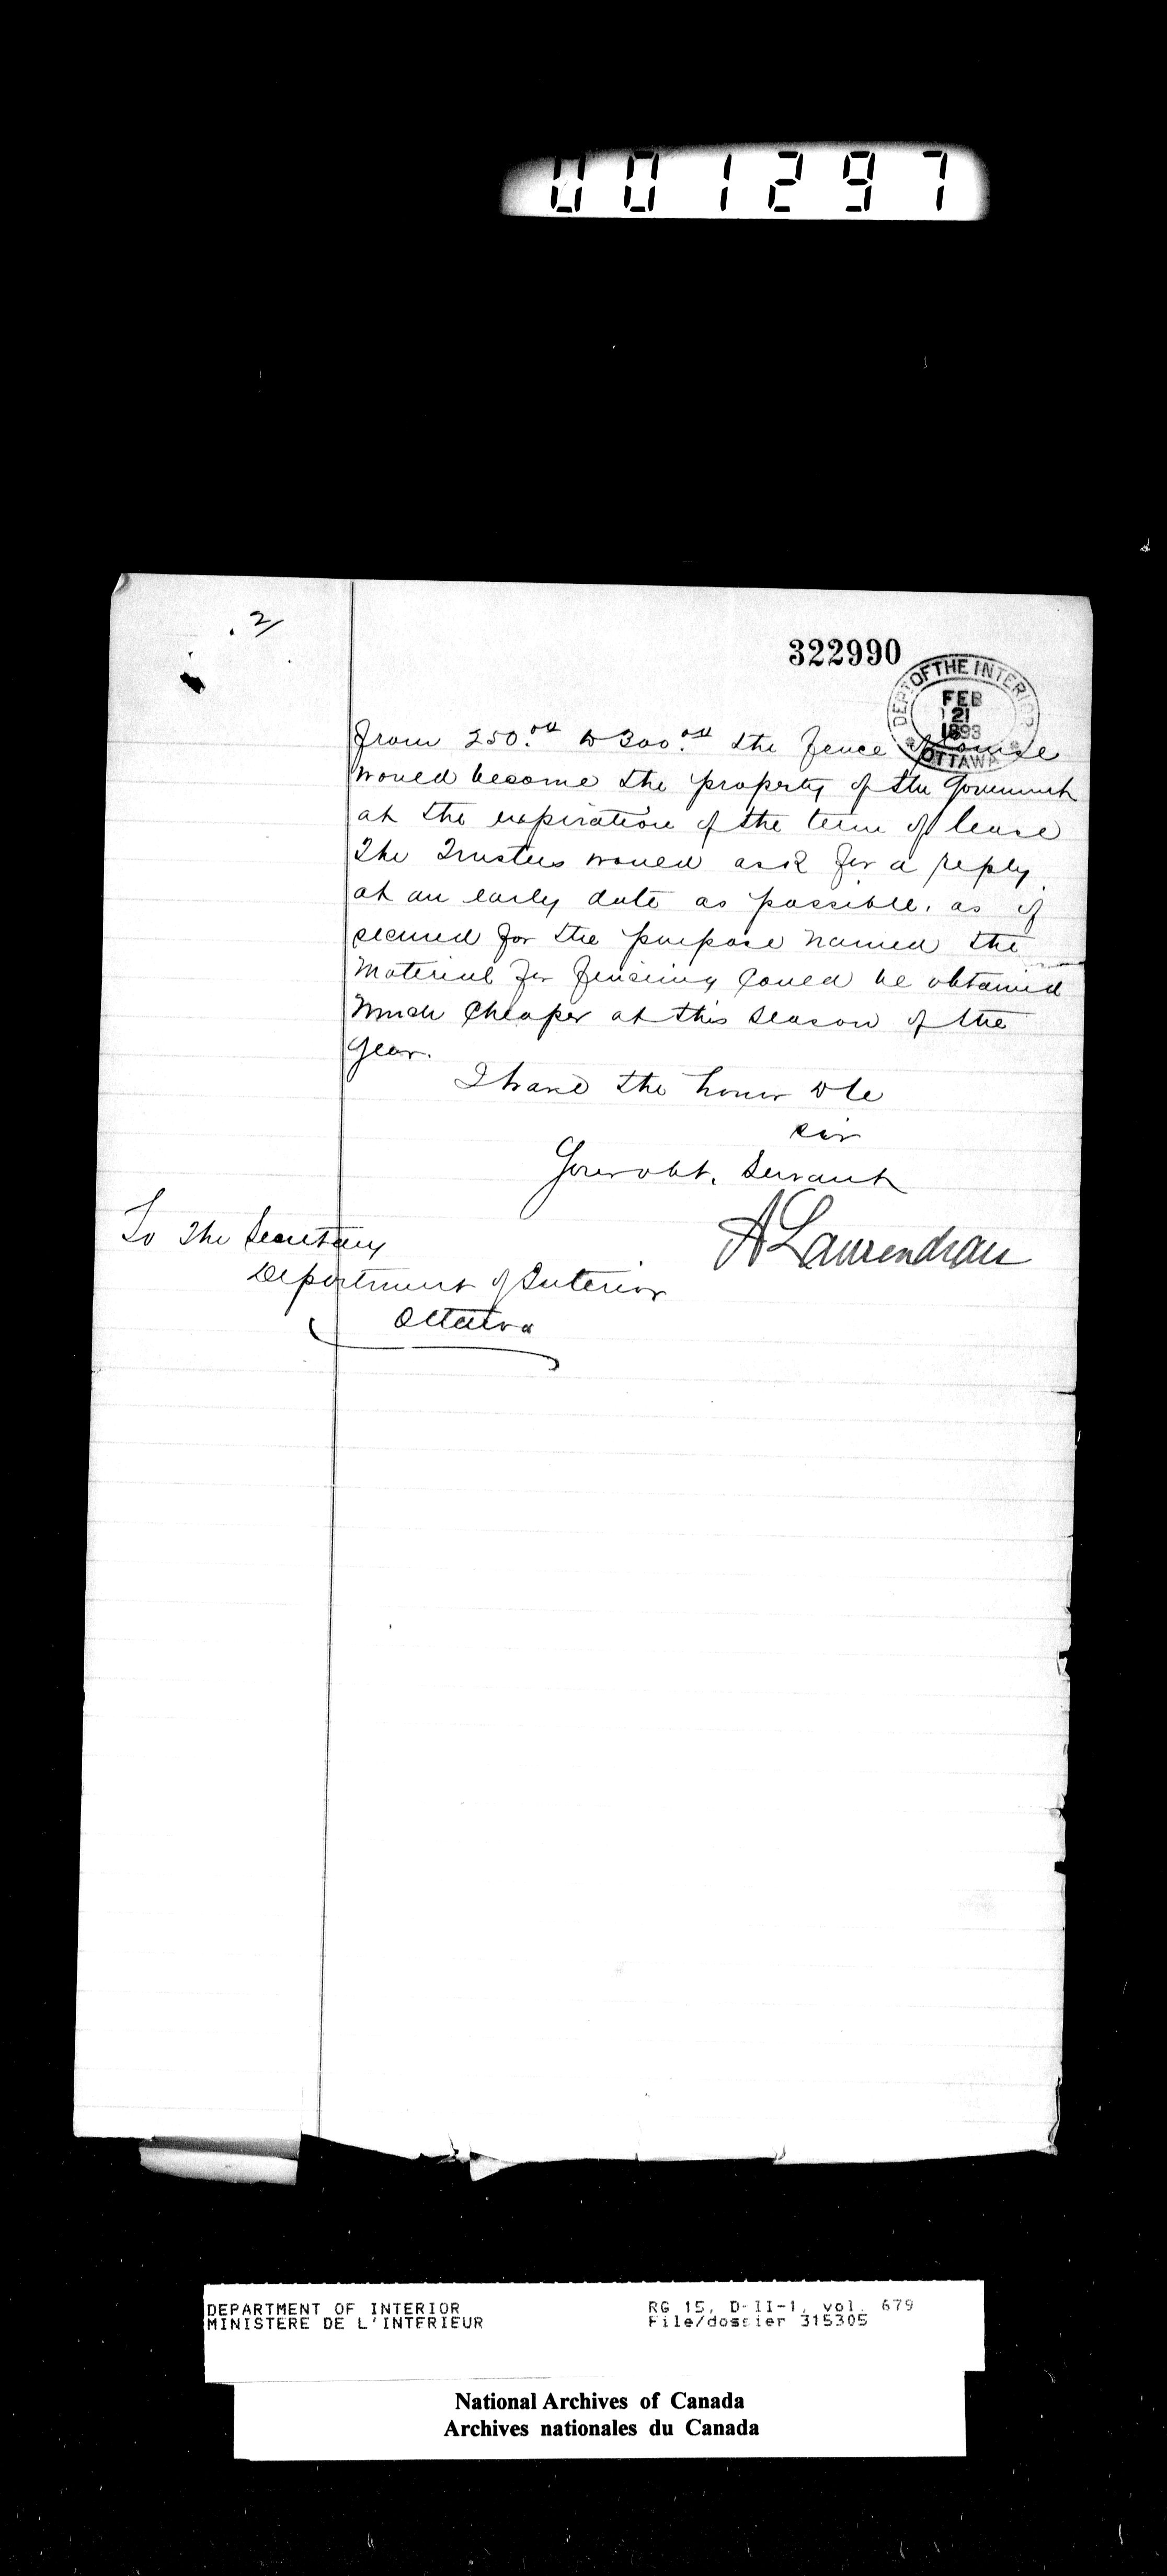 001297
2/
322990
DEPT OF THE INTERIOR
FEB
21
1893
OTTAWA
from 250.00 to 300.00 the fence
would become the property of the Government
at the expiration of the term of lease
The Trustees would ask for a reply
at an early date as possible. as if
secured for the purpose named the
Material for fencing Could be obtained
Much Cheaper at this Season of the
Year.
I have the honor to be
Sir
Your obt. Servant
A Laurendeau
To The Secretary
Department of Interior
Ottawa
DEPARTMENT OF INTERIOR
MINISTERE DE L'INTERIEUR
RG 15, D-II-1, vol. 679
File/dossier 315305
National Archives of Canada
Archives nationales du Canada